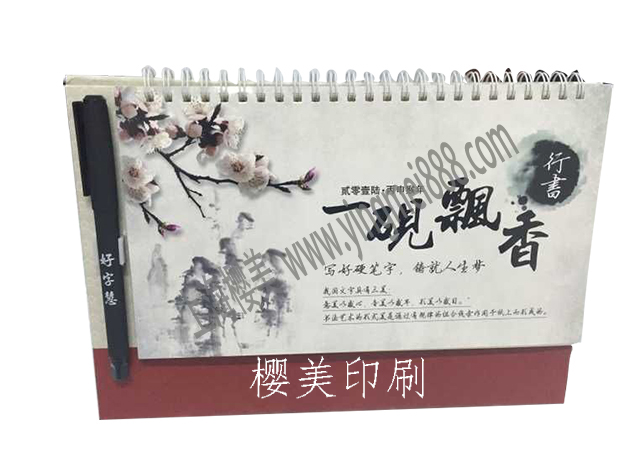 行書
贰零壹陆·丙申猴年
一砚飘香
写好硬笔字，铸就人生梦
我国文字具有三美：
意美以感心，音美以感耳，形美以感目。
书法艺术的形式美是通过有规律的组合线条作用于纸上而形成的。
好字慧
樱美 www.yingmei888.com
樱美印刷